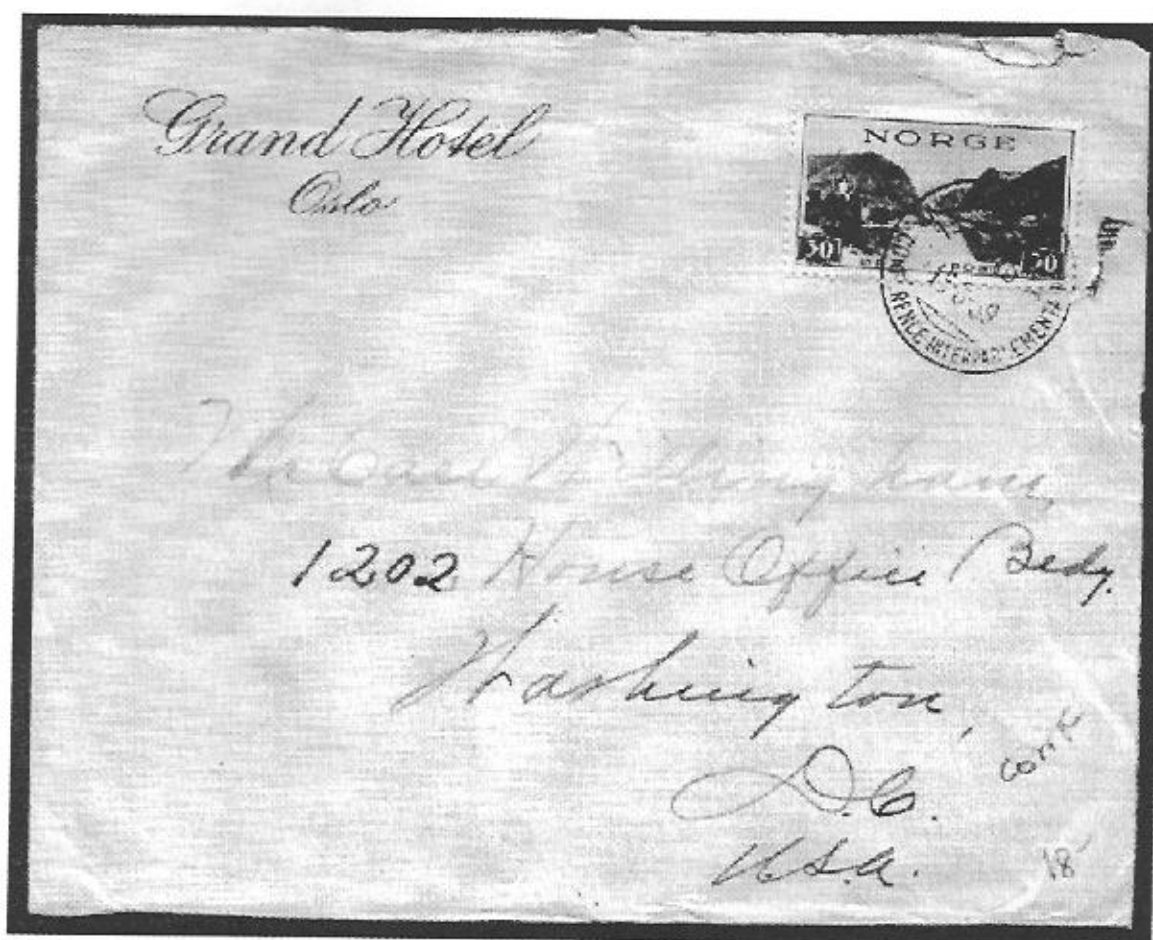 Grand Hotel
Oslo
NORGE
30 30
CONFERENCE INTERPARLEMENTA
1202 House Office Bldg.
Washington,
D.C.
U.S.A.
18-